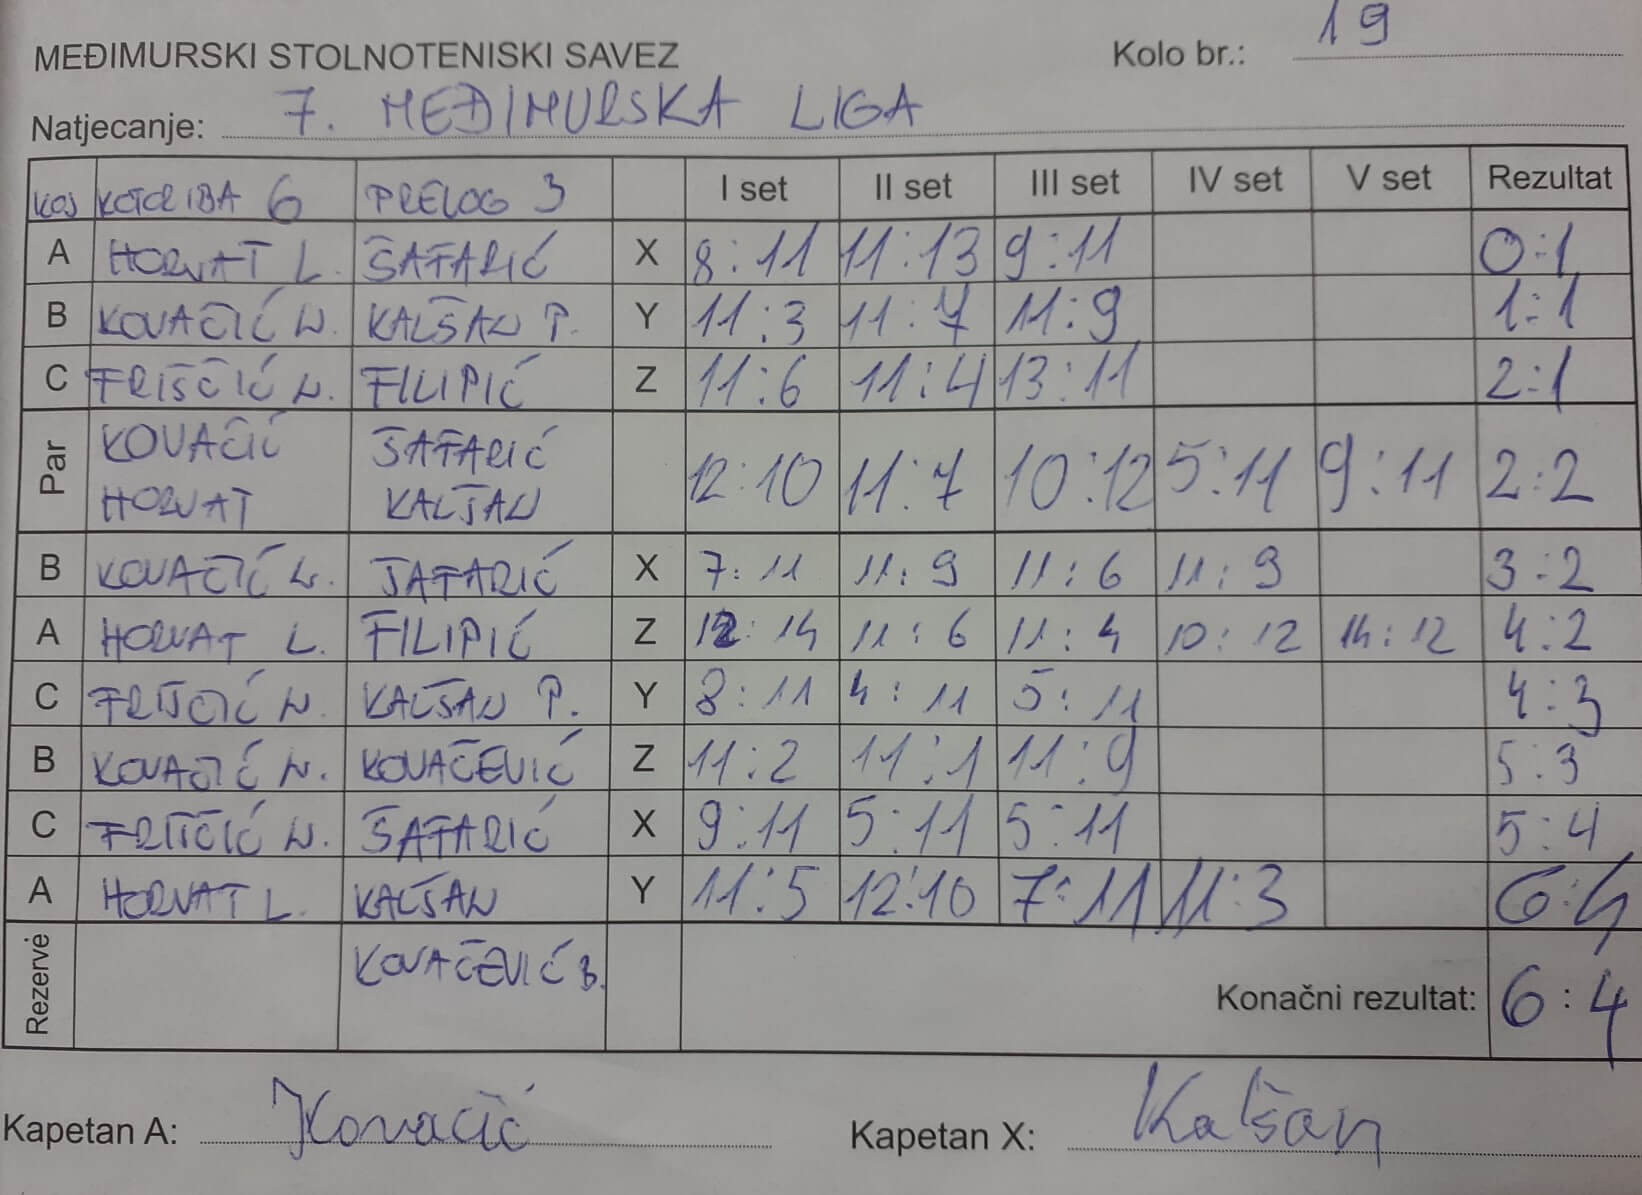 MEĐIMURSKI STOLNOTENISKI SAVEZ Kolo br.: 19
Natjecanje: 7. MEĐIMURSKA LIGA
KOTORIBA 6 PRELOG 3 I set II set III set IV set V set Rezultat
A HORVAT L. ŠAFARIĆ X 8:11 11:13 9:11 0:1
B KOVAČIĆ N. KALŠAN P. Y 11:3 11:7 11:9 1:1
C FRIŠČIĆ N. FILIPIĆ Z 11:6 11:4 13:11 2:1
Par KOVAČIĆ HORVAT ŠAFARIĆ KALŠAN 12:10 11:7 10:12 5:11 9:11 2:2
B KOVAČIĆ N. ŠAFARIĆ X 7:11 11:9 11:6 11:9 3:2
A HORVAT L. FILIPIĆ Z 12:14 11:6 11:4 10:12 14:12 4:2
C FRIŠČIĆ N. KALŠAN P. Y 8:11 4:11 5:11 4:3
B KOVAČIĆ N. KOVAČEVIĆ Z 11:2 11:1 11:9 5:3
C FRIŠČIĆ N. ŠAFARIĆ X 9:11 5:11 5:11 5:4
A HORVAT L. KALŠAN Y 11:5 12:10 7:11 11:3 6:4
Rezerve KOVAČEVIĆ B. Konačni rezultat: 6:4
Kapetan A: Kovačić Kapetan X: Kalšan